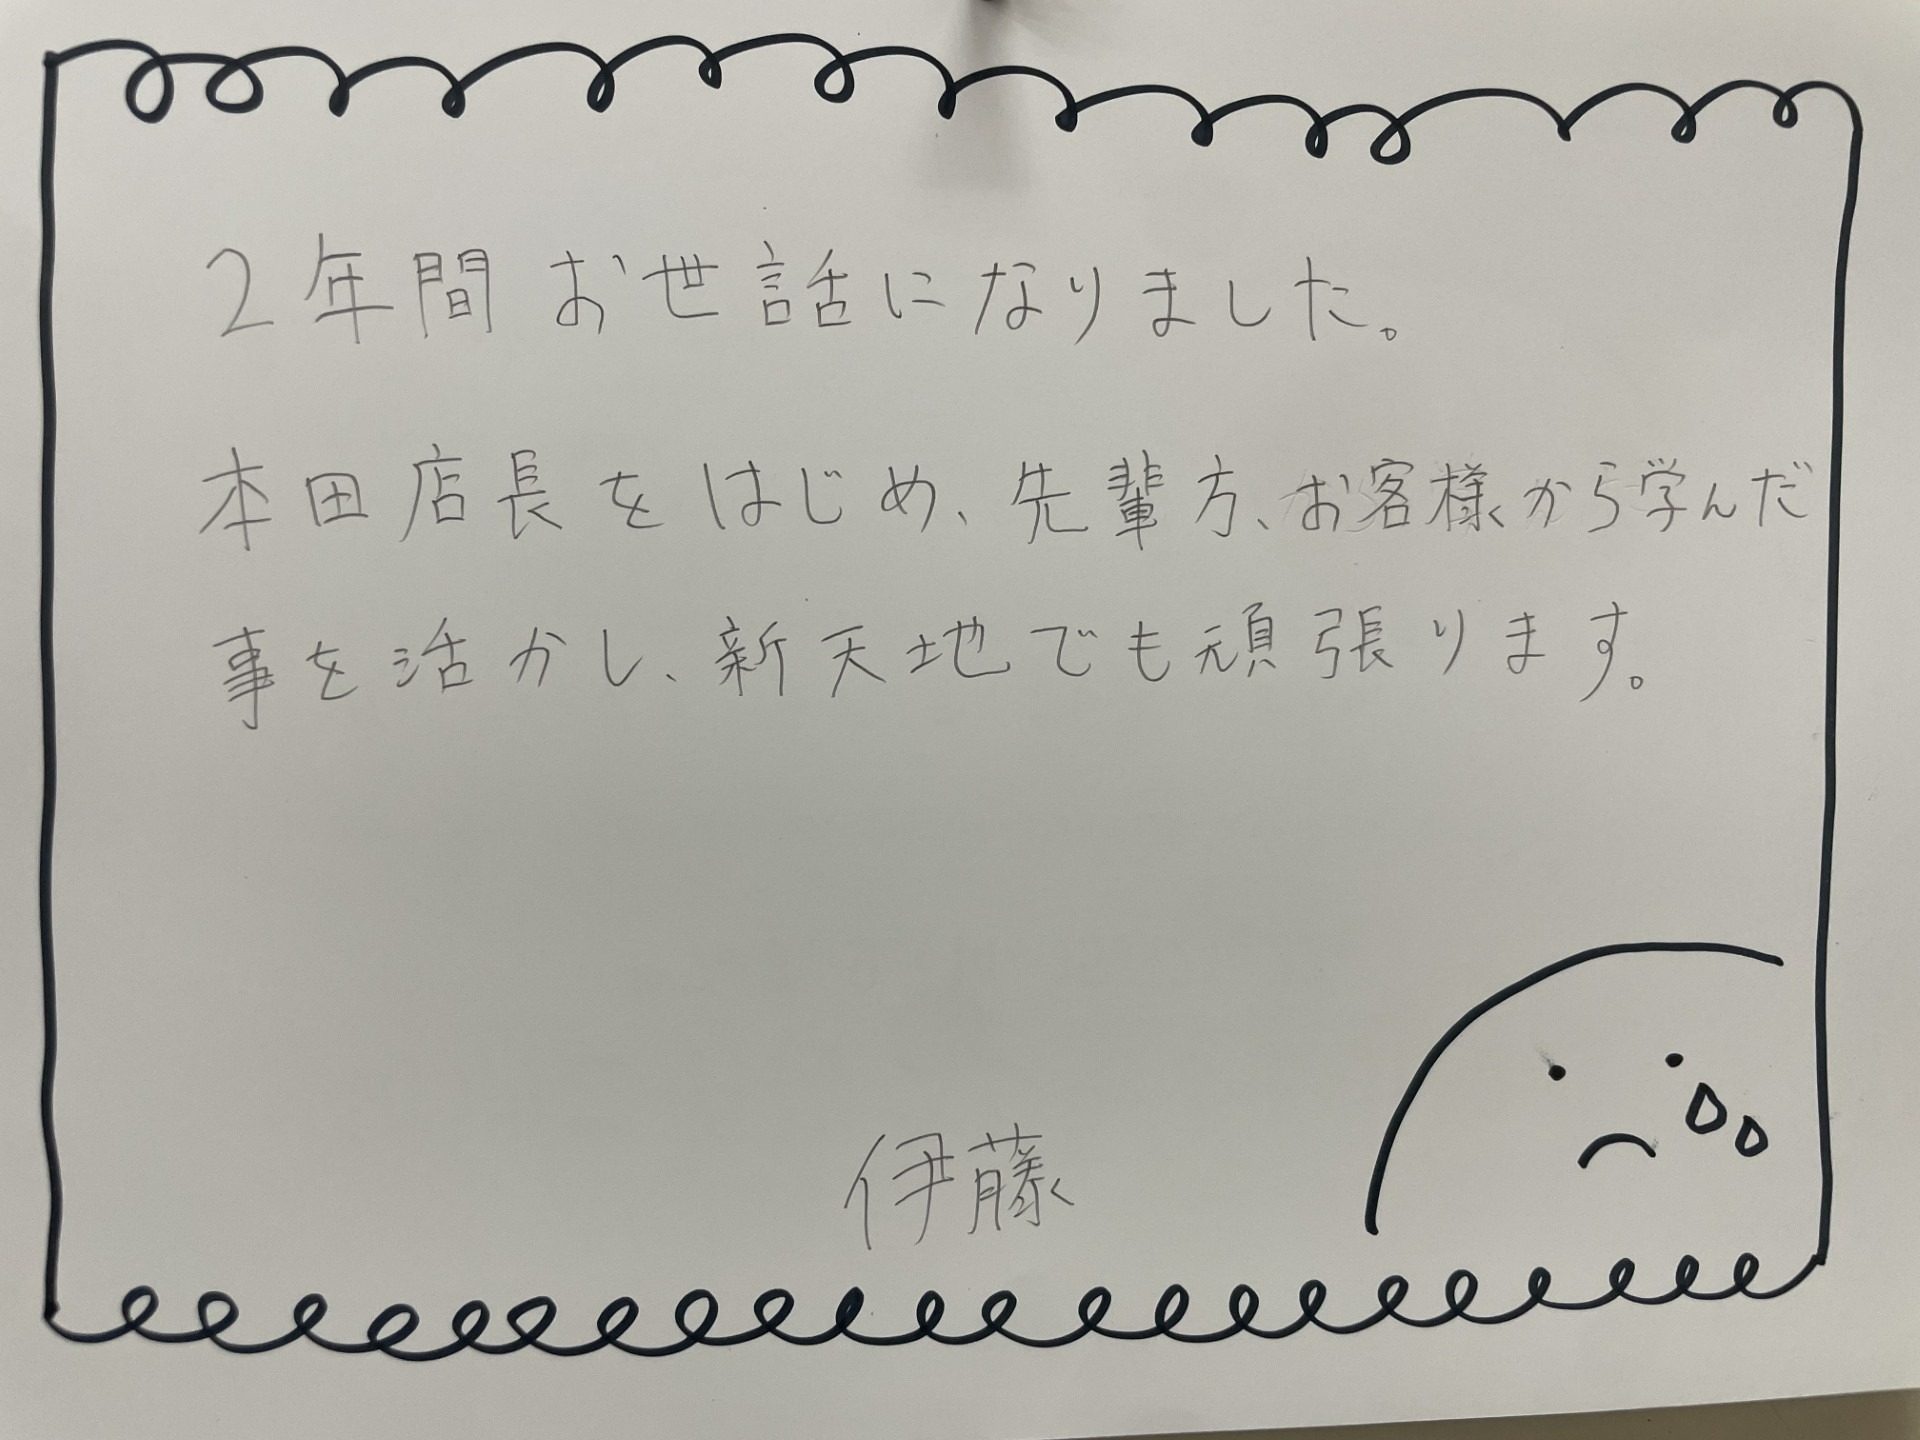 2年間お世話になりました。
本田店長をはじめ、先輩方、お客様から学んだ
事を活かし、新天地でも頑張ります。
伊藤